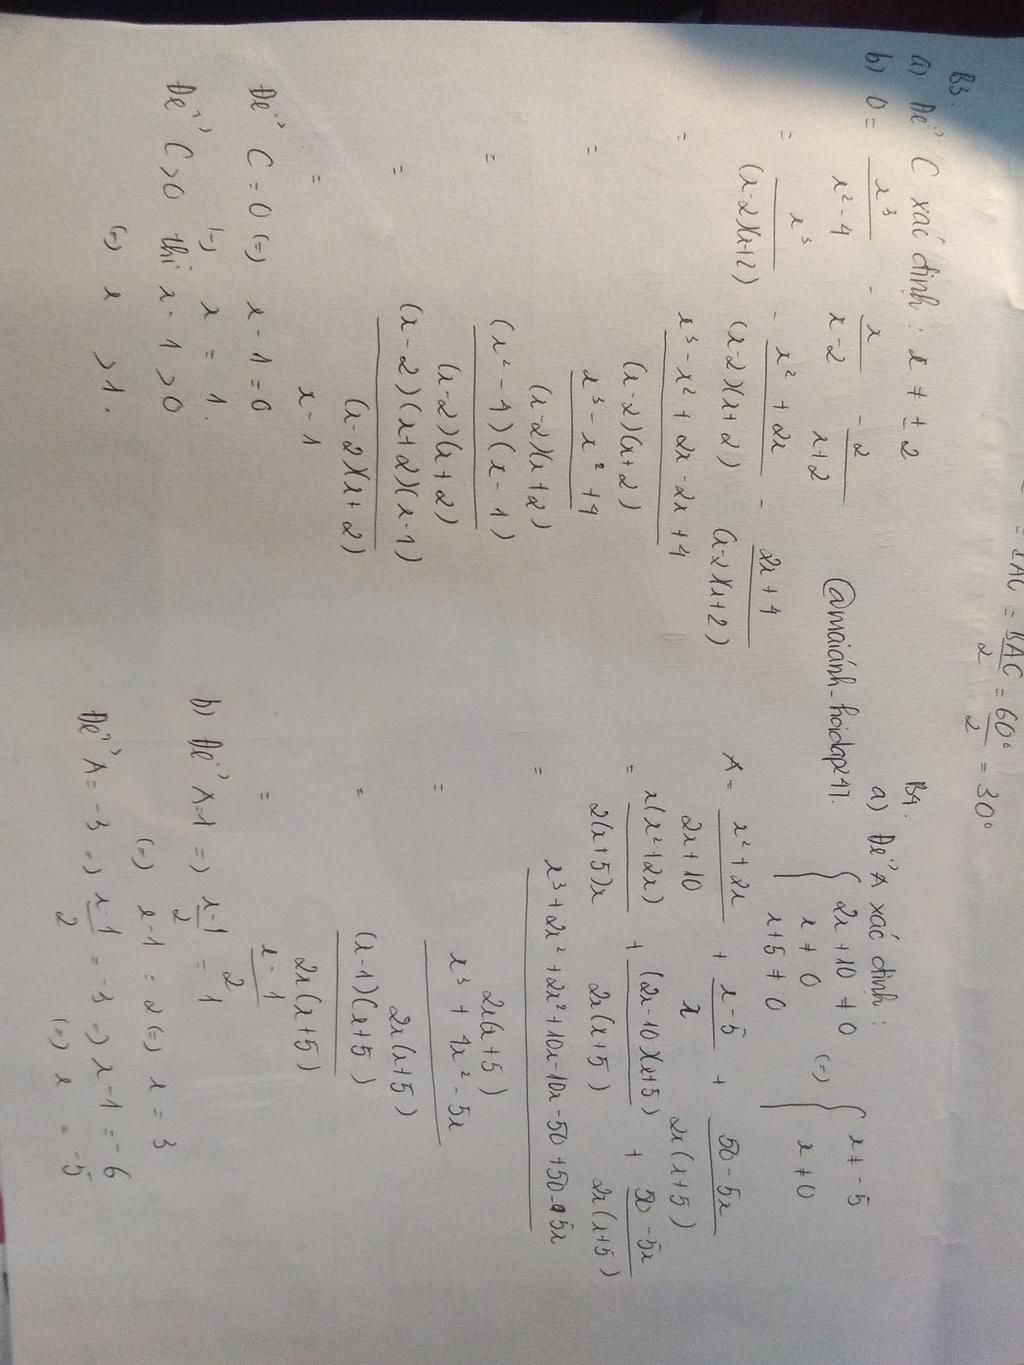 = IAC = BAC/2 = 60°/2 = 30°
B3.
a) Để C xác định : x ≠ ± 2
b) 0 = x³/x²-4 - x/x-2 - 2/x+2
= x³/(x-2)(x+2) - x²+2x/(x-2)(x+2) - 2x+4/(x-2)(x+2)
= x³-x²+2x-2x+4/(x-2)(x+2)
= x³-x²+4/(x-2)(x+2)
= (x²-4)(x-1)/(x-2)(x+2)
= (x-2)(x+2)(x-1)/(x-2)(x+2)
= x-1
Để C=0 (=) x-1=0
(=) x = 1.
Để C>0 thì x-1>0
(=) x >1.
@maiánh_hoidap247.
B4.
a) Để A xác định :
{ 2x+10 ≠ 0
x ≠ 0
x+5 ≠ 0
(=) { x ≠ -5
x ≠ 0
A = x²+2x/2x+10 + x-5/x + 50-5x/2x(x+5)
= x(x²+2x)/2(x+5)x + (2x-10)(x+5)/2x(x+5) + 50-5x/2x(x+5)
= x³+2x²+2x²+10x-10x-50+50-5x/2x(x+5)
= x³+4x²-5x/2x(x+5)
= (x-1)(x+5)/2x(x+5)
= x-1/2
b) Để A=1 => x-1/2 = 1
(=) x-1 = 2 (=) x = 3
Để A = -3 => x-1/2 = -3 => x-1 = -6
(=) x = -5